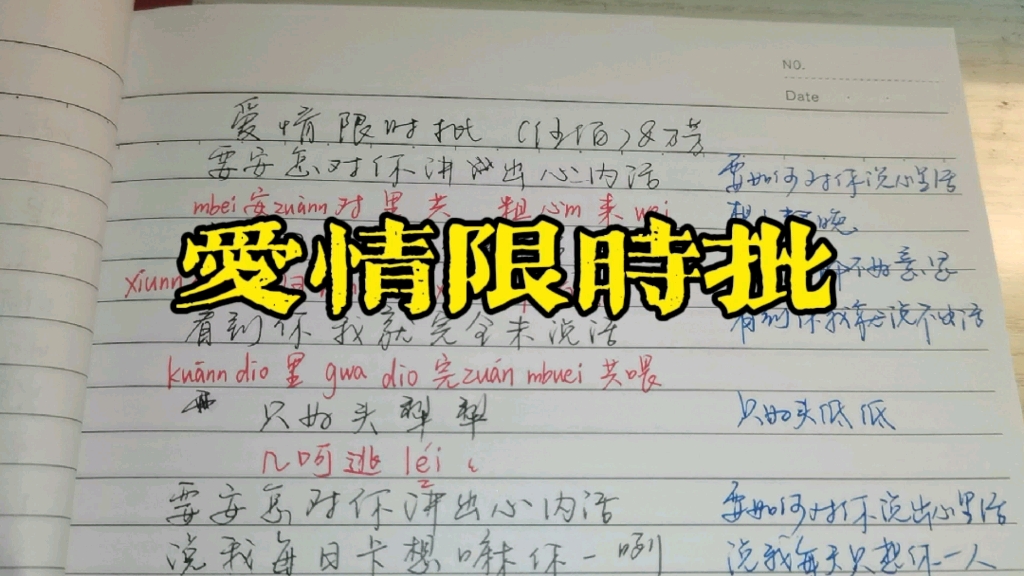 NO.
Date
爱情限时批 (伍佰)&万芳
要安怎对你讲出心内话 要如何对你说心里话
mbei安zuànn对里共 粗心m来wei
想 晚
xiunn
愛情限時批
不好意思
看到你我就完全未说话 看到你我说不出话
kuānn dio 里 gwa dio 完zuán mbuei 共喂
只好头犁犁 只好头低低
几呵逃 léi
要安怎对你讲出心内话 要如何对你说出心里话
说我每日卡想嘛你一咧 说我每天只想你一人